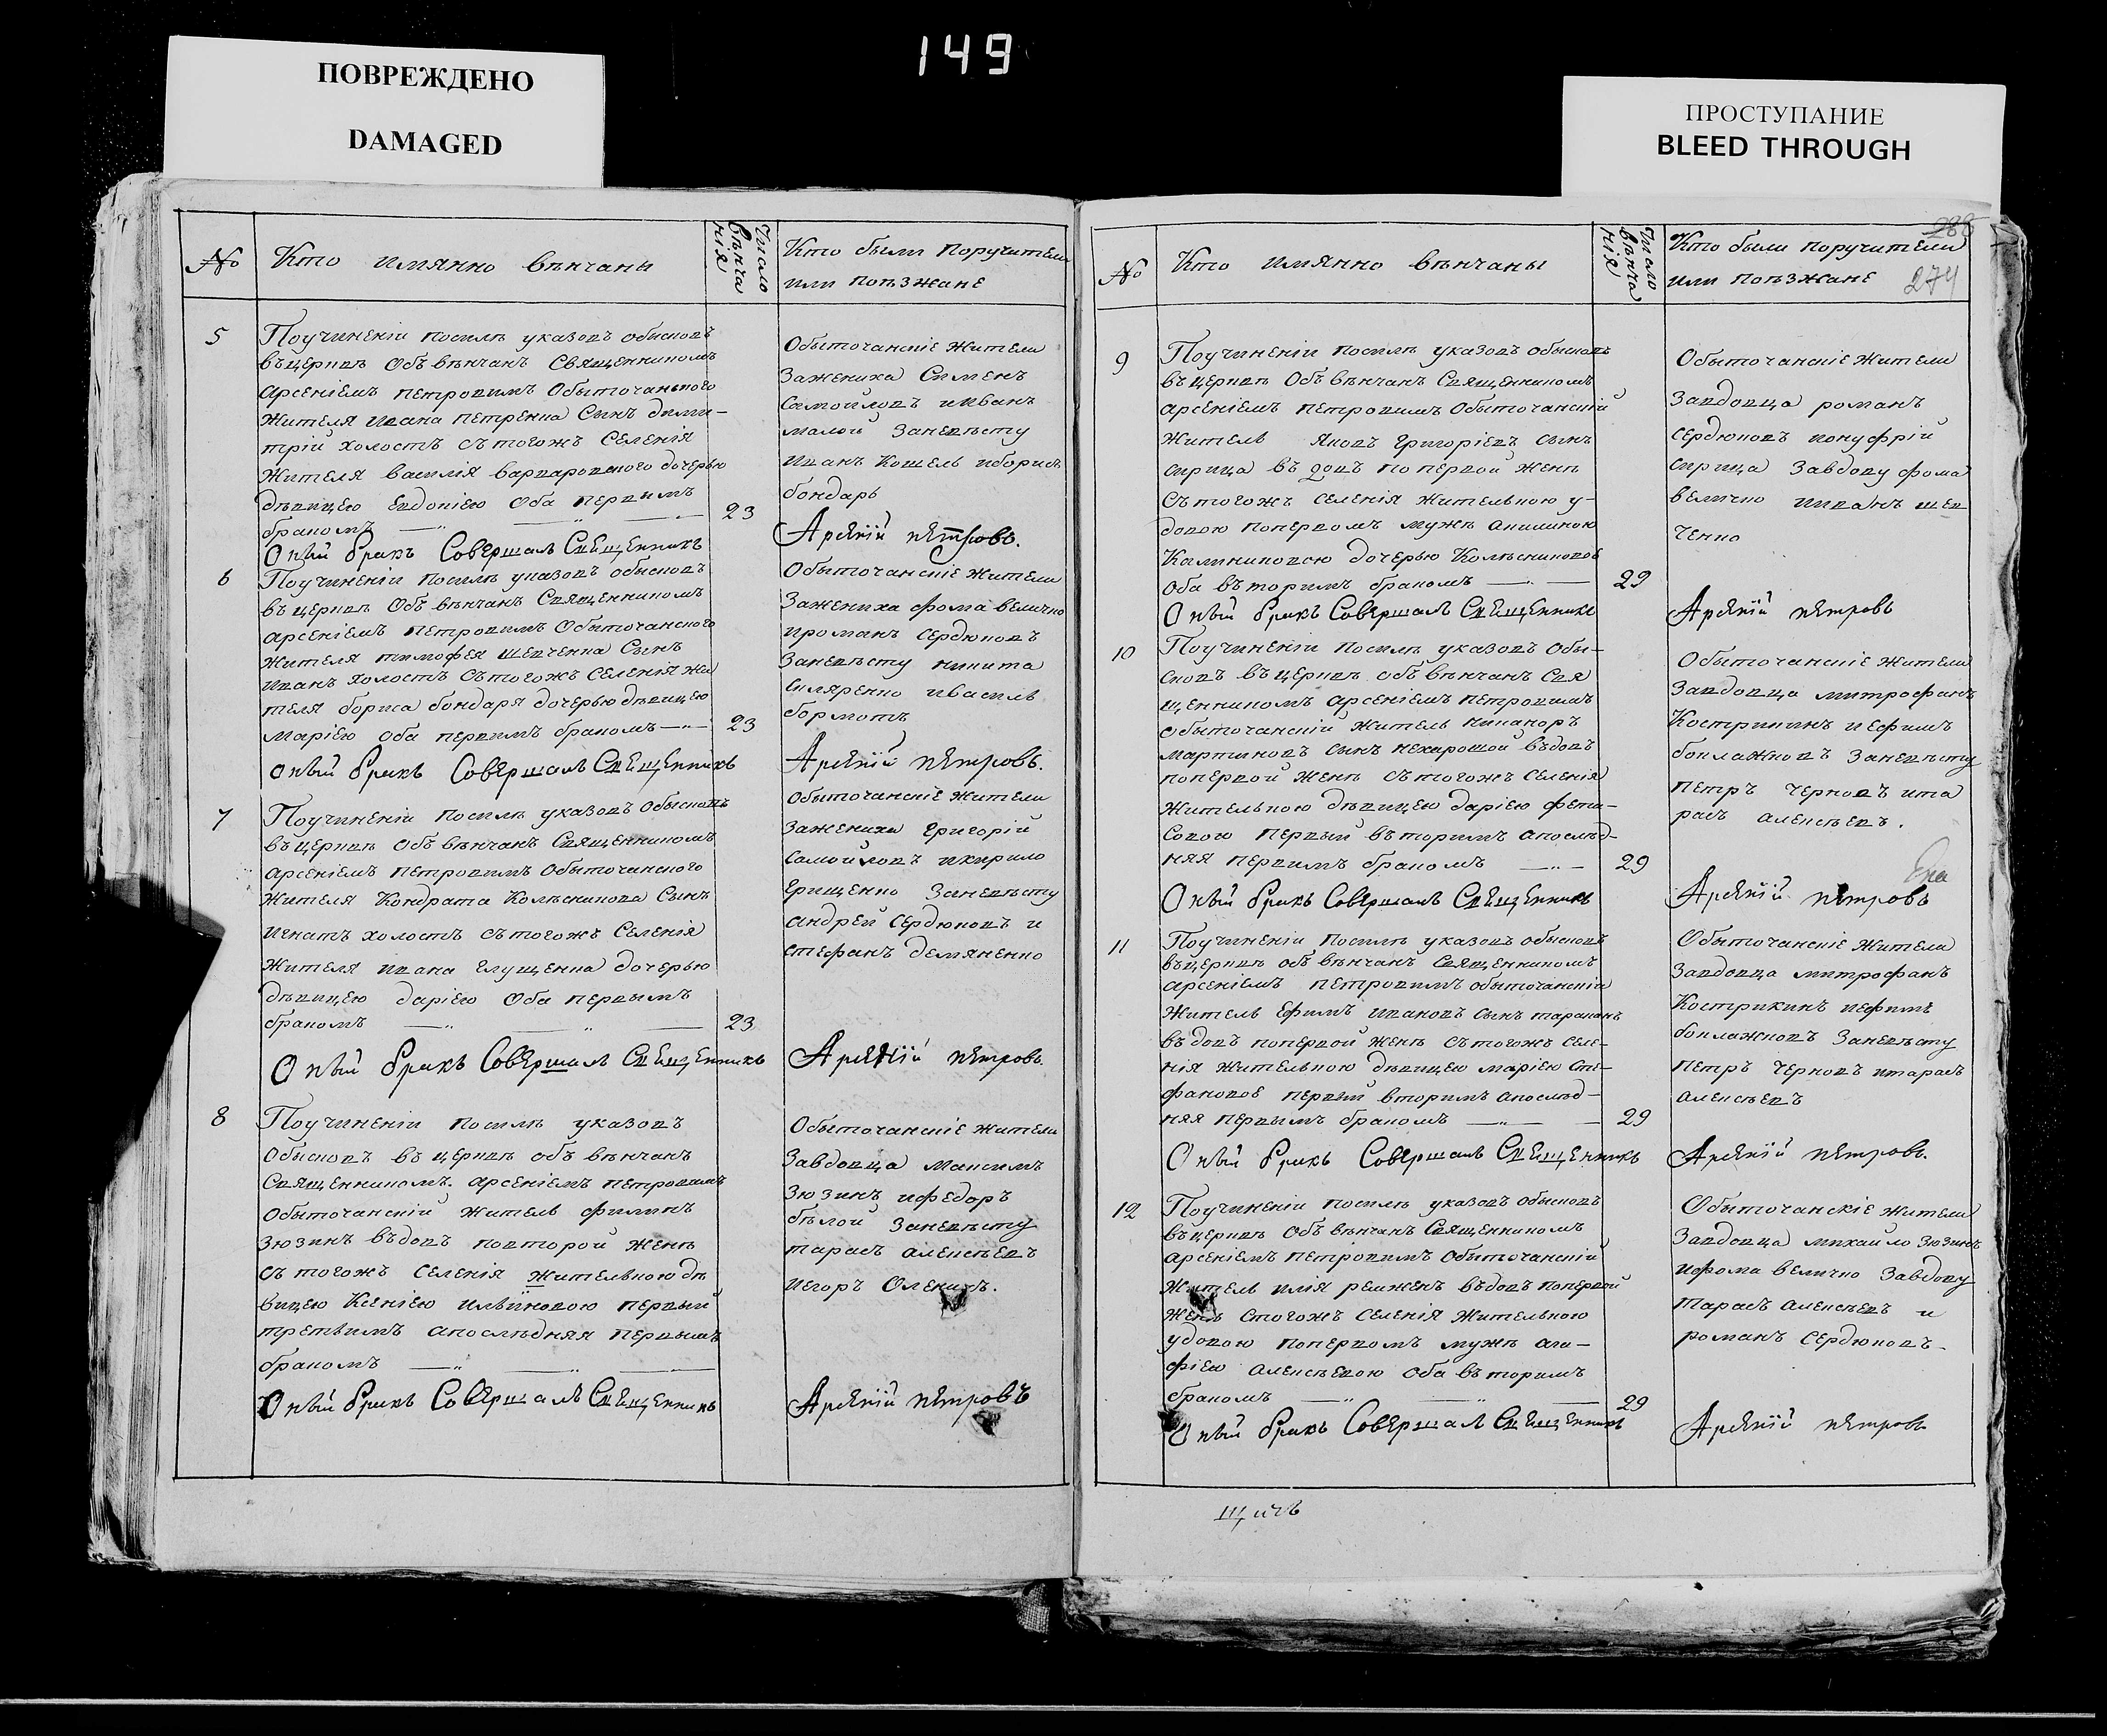 149
ПОВРЕЖДЕНО
DAMAGED
ПРОСТУПАНИЕ
BLEED THROUGH
№
Кто имянно вѣнчаны
Число вѣнчанія
Кто были поручители
или поѣзжане
5
Поучиненіи посилѣ указовъ обысковъ
въцерквѣ объвѣнчанъ Священникомъ
арсеніемъ петровимъ Обыточанского
жителя ивана петренка Сынъ дими-
трій холостъ сътогожъ Селенія
жителя василія варваровского дочерью
дѣвицею Евдокіею Оба первимъ
бракомъ
23
Оный бракъ Совершалъ Священникъ
Обыточанскіе жители
Зажениха Сименъ
Самойловъ иИванъ
малой Заневѣсту
Иванъ Кошель иборисъ
бондарь
Арсеній петровъ.
6
Поучиненіи посилѣ указовъ обысковъ
въцерквѣ Объвѣнчанъ Священникомъ
арсеніемъ петровимъ Обыточанского
жителя тимофея шевченка Сынъ
иванъ холостъ сътогожъ Селенія жи
теля бориса бондаря дочерью дѣвицею
маріею Оба первимъ бракомъ
23
Оный бракъ Совершалъ Священникъ
Обыточанскіе жители
Зажениха фома величко
ироманъ Сердюковъ
Заневѣсту никита
Скляренко ивасиль
бормотъ
Арсеній петровъ.
7
Поучиненіи посилѣ указовъ Обысковъ
въцерквѣ объвѣнчанъ Священникомъ
арсеніемъ петровимъ Обыточанского
жителя Кондрата Колѣсникова Сынъ
Игнатъ холостъ сътогожъ Селенія
жителя ивана глущенка дочерью
дѣвицею даріею Оба первымъ
бракомъ
23
Оный бракъ Совершалъ Священникъ
Обыточанскіе жители
Зажениха григорій
Самойловъ икирило
грищенко Заневѣсту
андрей Сердюковъ и
стефанъ демяненко
Арсеній петровъ.
8
Поучиненіи посилѣ указовъ
Обысковъ въцерквѣ объвѣнчанъ
Священникомъ. арсеніемъ петровимъ
Обыточанскій житель филипъ
Зюзинъ въдовъ повторой женѣ
съ тогожъ Селенія жителькою дѣ
вицею Ксеніею первый
третьимъ апослѣдняя первымъ
бракомъ
Оный бракъ Совершалъ Священникъ
Обыточанскіе жители
Завдовца максимъ
Зюзинъ ифедоръ
бѣлой Заневѣсту
тарасъ алексѣевъ
иегоръ
Арсеній петровъ
№
Кто имянно вѣнчаны
Число вѣнчанія
Кто были поручители
или поѣзжане
288
274
9
Поучиненіи посилѣ указовъ обысковъ
въцерквѣ Объвѣнчанъ Священникомъ
арсеніемъ петровимъ Обыточанскій
житель яковъ григоріевъ сынъ
скрица въдовъ попервой женѣ
сътогожъ селенія жителькою у-
довою попервомъ мужѣ акилиною
Калиниковою дочерью Колѣсниковов
Оба въторимъ бракомъ
29
Оный бракъ Совершалъ Священникъ
Обыточанскіе жители
Завдовца романъ
Сердюковъ ионуфрій
скрица Завдову фома
величко иванъ шев
ченко
Арсеній петровъ
10
Поучиненіи посилѣ указовъ Обы-
сковъ въцерквѣ объвѣнчанъ Свя
щенникомъ арсеніемъ петровимъ
обыточанскій житель никаноръ
мартиновъ сынъ нехарошой въдовъ
попервой женѣ сътогожъ селенія
жителькою дѣвицею даріею
первый въторимъ апослѣд-
няя первимъ бракомъ
29
Оный бракъ Совершалъ Священникъ
Обыточанскіе жители
Завдовца митрофанъ
Кострикинъ иефимъ
боклажковъ Заневѣсту
петръ черновъ ита
расъ алексѣевъ.
Арсеній петровъ
11
Поучиненіи посилѣ указовъ обысковъ
въцерквѣ объвѣнчанъ Священникомъ
арсеніемъ петровимъ обыточанскій
житель Ефимъ ивановъ сынъ тараканъ
въдовъ попервой женѣ сътогожъ селе-
нія жителькою дѣвицею маріею Сте-
фановоѣ первый вторимъ апослѣд-
няя первымъ бракомъ
29
Оный бракъ Совершалъ Священникъ
Обыточанскіе жители
Завдовца митрофанъ
Кострикинъ иефимъ
боклажковъ Заневѣсту
петръ черновъ итарасъ
алексѣевъ
Арсеній петровъ.
12
Поучиненіи посилѣ указовъ обысковъ
въцерквѣ Объвѣнчанъ Священникомъ
арсеніемъ петровимъ Обыточанскій
житель илія ремжевъ въдовъ попервой
женѣ стогожъ селенія жителькою
удовою попервомъ мужѣ ага-
фіею алексѣевою оба въторимъ
бракомъ
29
Оный бракъ Совершалъ Священникъ
Обыточанскіе жители
Завдовца михайло Зюзинъ
ифома величко Завдову
тарасъ алексѣевъ и
романъ Сердюковъ.
Арсеній петровъ